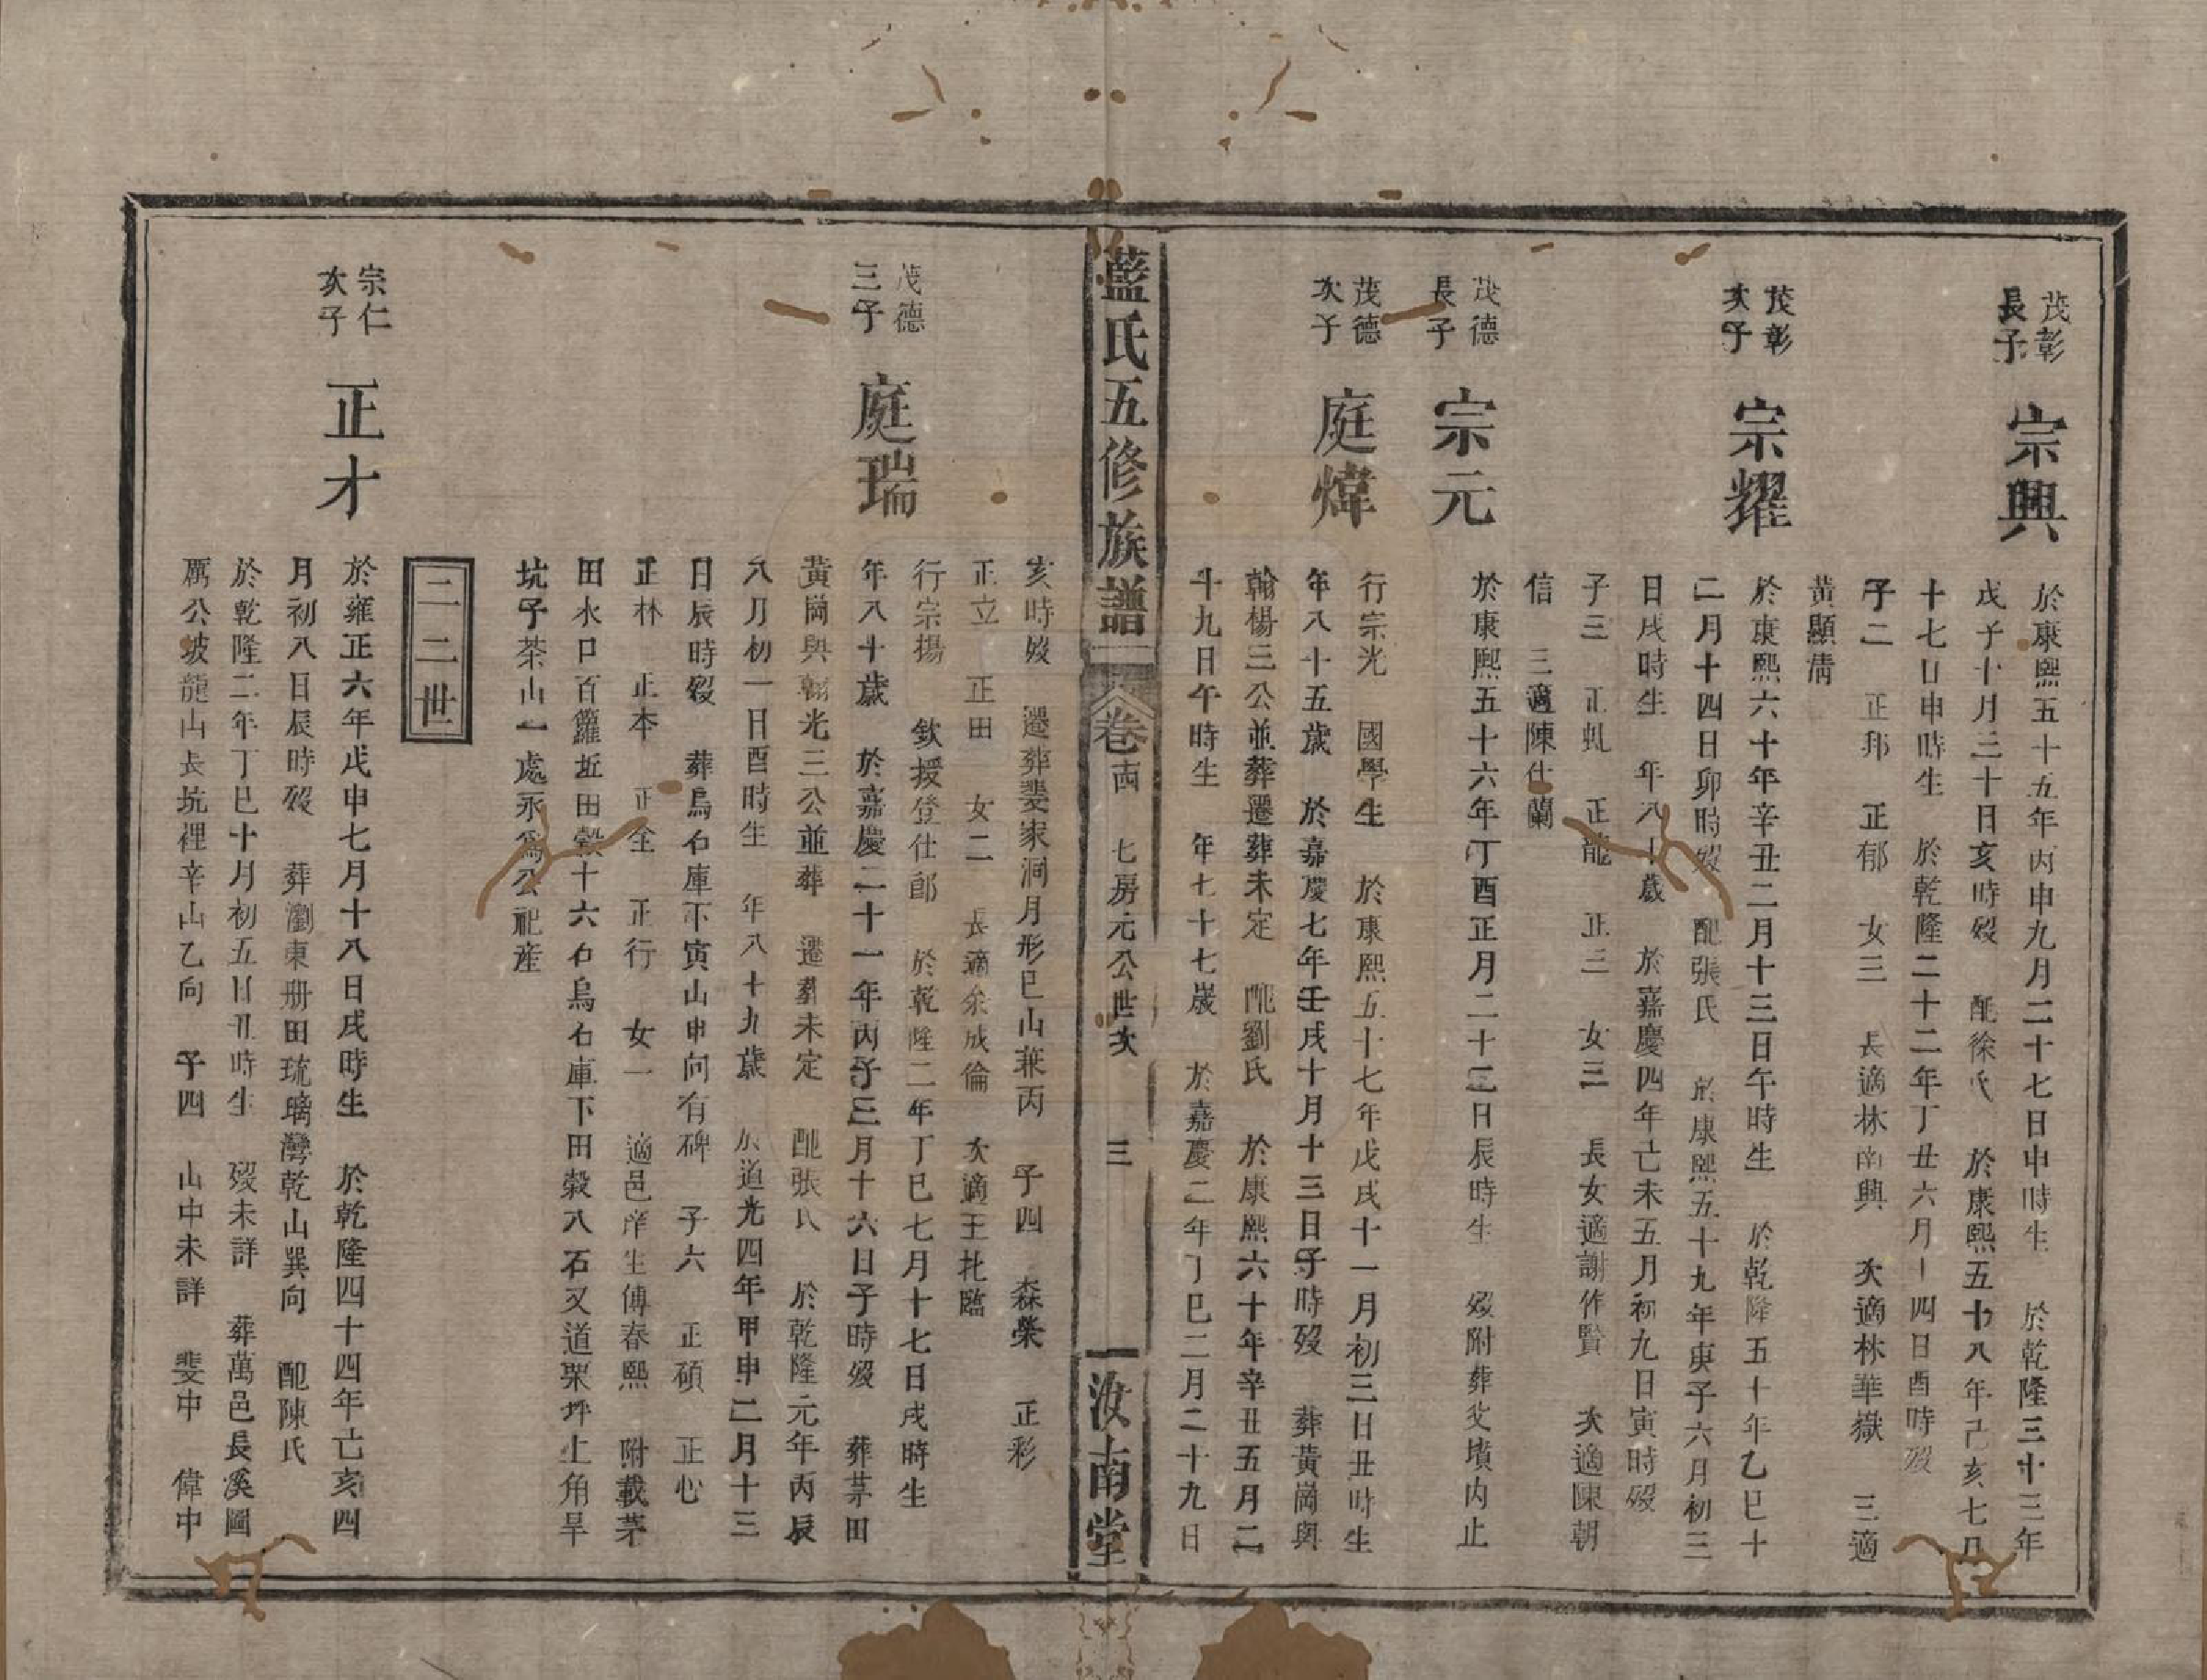 茂彰長子
宗興
於康熙五十五年丙申九月二十七日申時生 於乾隆三十三年
戊子十月三十日亥時歿 配徐氏 於康熙五十八年己亥七月
十七日申時生 於乾隆二十二年丁丑六月十四日酉時歿
子二 正邦 正郁 女三 長適林南興 次適林華嶽 三適
黃顯清
茂彰次子
宗耀
於康熙六十年辛丑二月十三日午時生 於乾隆五十年乙巳十
二月十四日卯時歿 配張氏 於康熙五十九年庚子六月初三
日戌時生 年八十歲 於嘉慶四年己未五月初九日寅時歿
子三 正虬 正龍 正三 女三 長女適謝作賢 次適陳朝
信 三適陳仕蘭
茂德長子
宗元
於康熙五十六年丁酉正月二十三日辰時生 歿附葬父墳內止
茂德次子
庭煒
行宗光 國學生 於康熙五十七年戊戌十一月初三日丑時生
年八十五歲 於嘉慶七年壬戌十月十三日子時歿 葬黃崗與
翰楊三公並葬遷葬未定 配劉氏 於康熙六十年辛丑五月二
十九日午時生 年七十七歲 於嘉慶二年丁巳二月二十九日
藍氏五修族譜 卷 七房元公世次 三 汝南堂
亥時歿 遷葬婁家洞月形巳山兼丙 子四 森榮 正彩
正立 正田 女二 長適余成倫 次適王 臨
茂德三子
庭瑞
行宗揚 欽授登仕郎 於乾隆二年丁巳七月十七日戌時生
年八十歲 於嘉慶二十一年丙子三月十六日子時歿 葬茅田
黃崗與翰光三公並葬 遷葬未定 配張氏 於乾隆元年丙辰
八月初一日酉時生 年八十九歲 於道光四年甲申二月十三
日辰時歿 葬烏石庫下寅山申向有碑 子六 正碩 正心
正林 正本 正全 正行 女一 適邑庠生傅春熙 附載茅
田水口百籮坵田穀十六石烏石庫下田穀八石又道 坪上角旱
坑子茶山一處永為公祀産
二二世
宗仁次子
正才
於雍正六年戊申七月十八日戌時生 於乾隆四十四年己亥四
月初八日辰時歿 葬瀏東册田琉璃灣乾山巽向 配陳氏
於乾隆二年丁巳十月初五日丑時生 歿未詳 葬萬邑長溪圖
厲公坡龍山長坑裡辛山乙向 子四 山中未詳 斐中 偉中